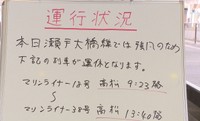 運行状況
本日瀬戸大橋線では強風のため
下記の列車が運休となります。
マリンライナー18号 高松 9:23発
〜
マリンライナー38号 高松 13:40発